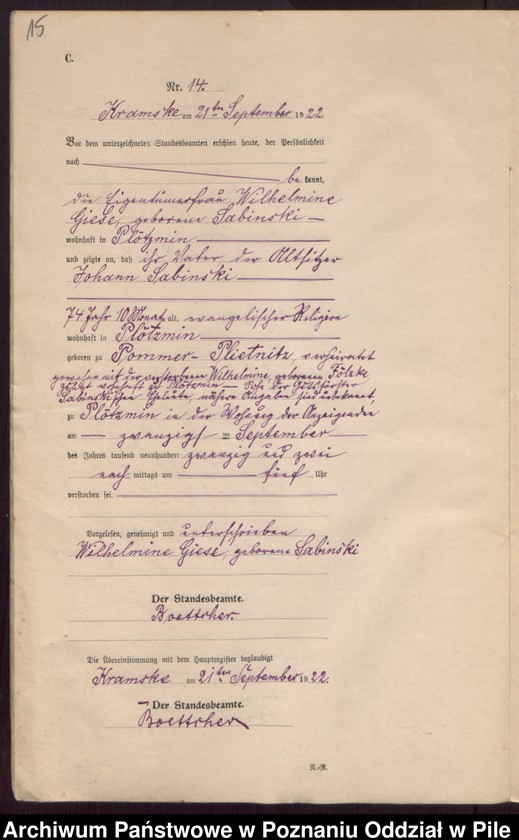 15
C.
Nr. 14.
Kramske am 21ten September 1922
Vor dem unterzeichneten Standesbeamten erschien heute, der Persönlichkeit
nach
be kannt,
die Eigentümerfrau Wilhelmine
Giese, geborene Sabinski
wohnhaft in Plötzmin
und zeigte an, daß ihr Vater der Altsitzer
Johann Sabinski
74 Jahr 10 Monate alt, evangelischer Religion
wohnhaft in Plötzmin
geboren zu Pommer-Plietnitz, verheiratet
gewesen mit der verstorbenen Wilhelmine geborenen
zuletzt wohnhaft zu Plötzmin Sohn der
Sabinskischen Eheleute, nähere Angaben sind unbekannt,
zu Plötzmin in der Wohnung der Anzeigenden
am zwanzigst en September
des Jahres tausend neunhundert zwanzig und zwei
nach mittags um fünf Uhr
verstorben sei.
Vorgelesen, genehmigt und unterschrieben
Wilhelmine Giese, geborene Sabinski
Der Standesbeamte.
Boettcher.
Die Übereinstimmung mit dem Hauptregister beglaubigt
Kramske am 21ten September 1922.
Der Standesbeamte.
Boettcher
N.-R.
Archiwum Państwowe w Poznaniu Oddział w Pile